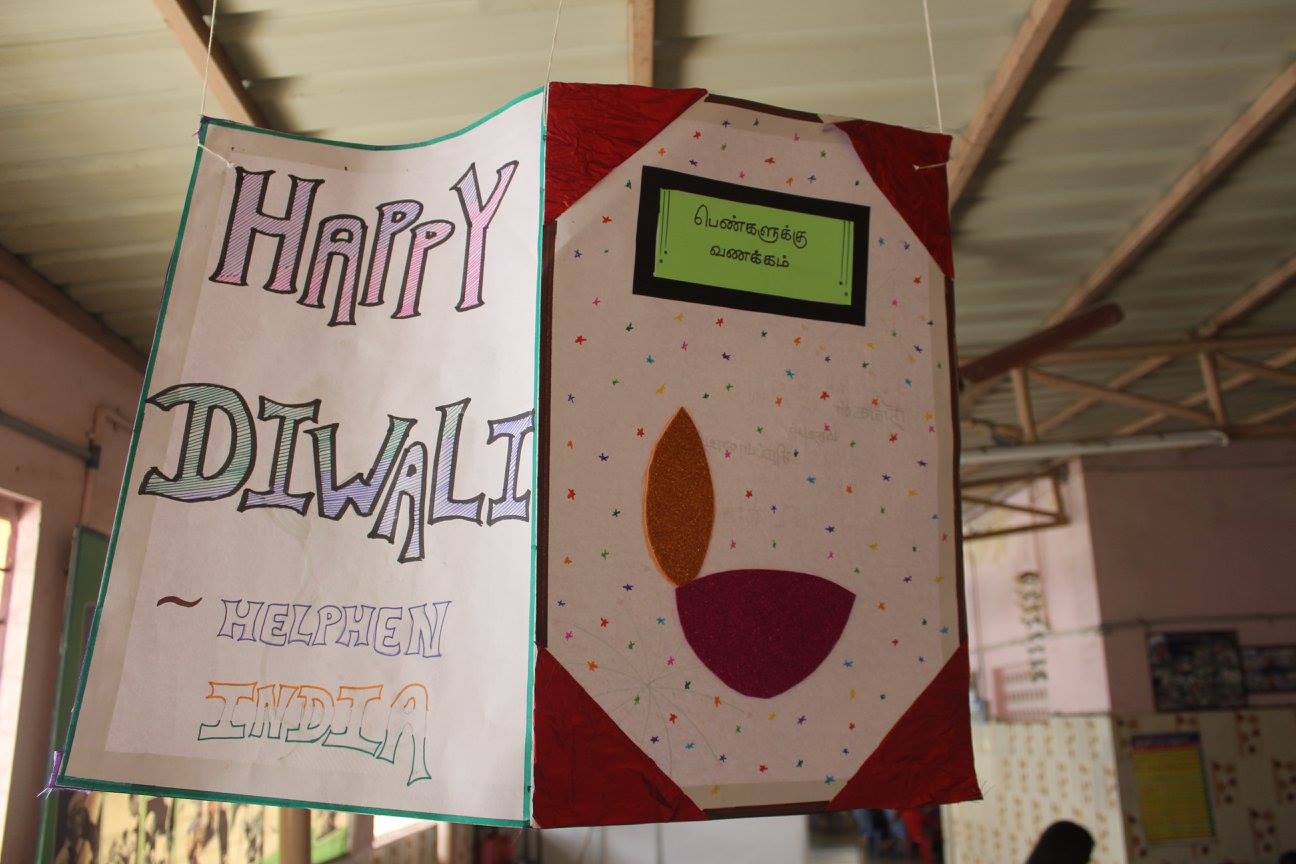 HAPPY
DIWALI
~ HELPHEN
INDIA
பெண்களுக்கு
வணக்கம்